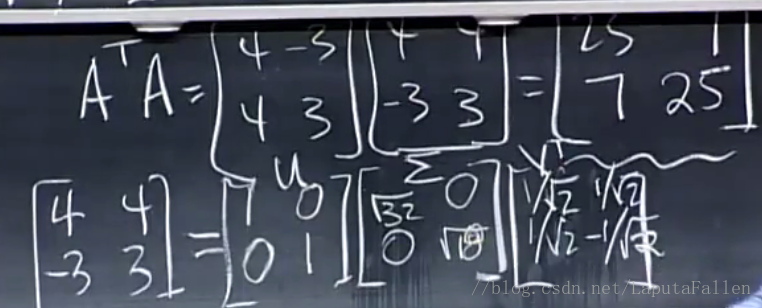 AᵀA = [4 -3; 4 3] [4 4; -3 3] = [25 7; 7 25]
U Σ Vᵀ
[4 4; -3 3] = [1 0; 0 1] [√32 0; 0 √18] [1/√2 1/√2; 1/√2 -1/√2]
//blog.csdn.net/LaputaFallen